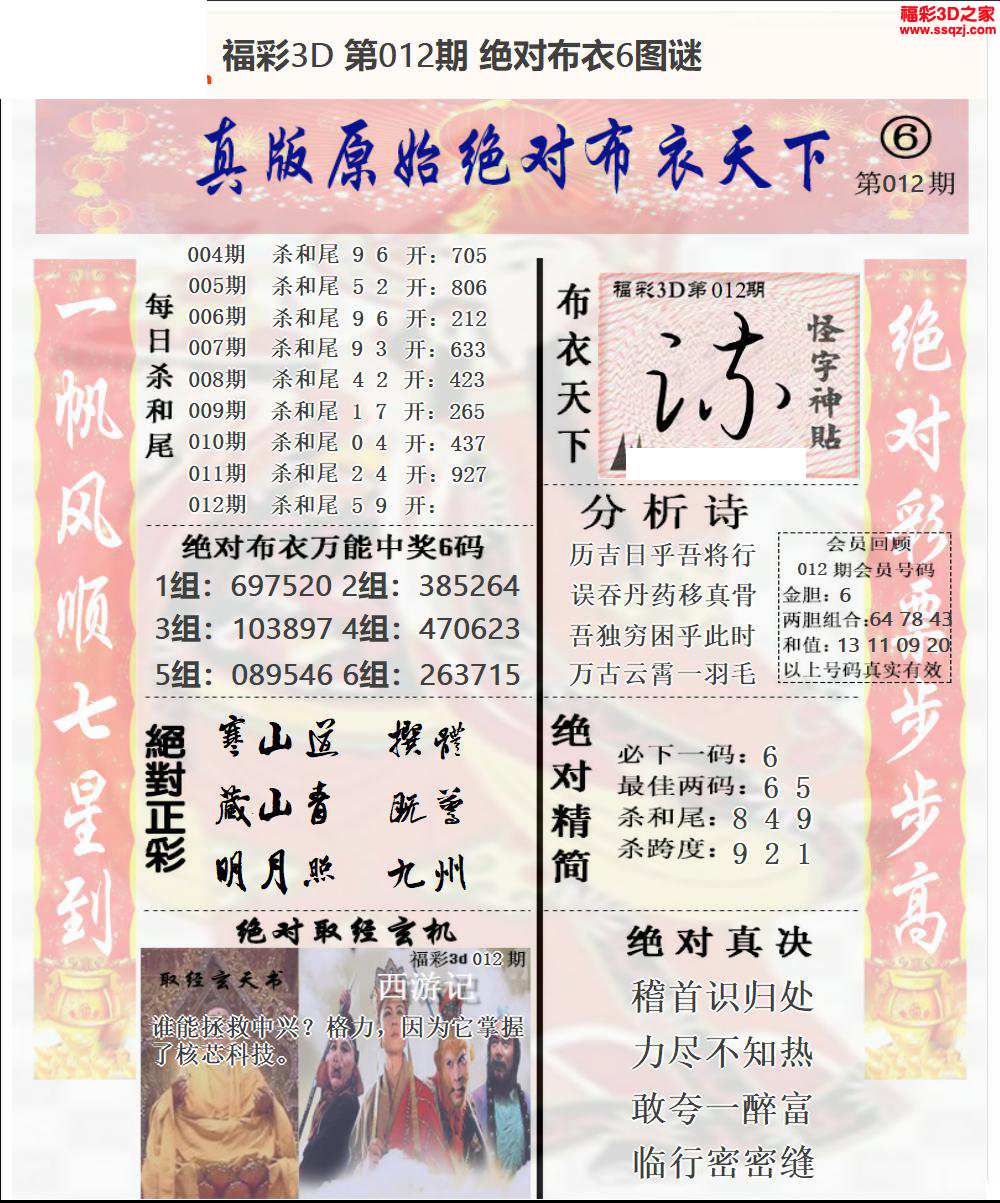 福彩3D之家
www.ssqzj.com
福彩3D 第012期 绝对布衣6图谜
真版原始绝对布衣天下
⑥
第012期
一帆风顺七星到
每日杀和尾
004期 杀和尾 9 6 开：705
005期 杀和尾 5 2 开：806
006期 杀和尾 9 6 开：212
007期 杀和尾 9 3 开：633
008期 杀和尾 4 2 开：423
009期 杀和尾 1 7 开：265
010期 杀和尾 0 4 开：437
011期 杀和尾 2 4 开：927
012期 杀和尾 5 9 开：
绝对布衣万能中奖6码
1组：697520 2组：385264
3组：103897 4组：470623
5组：089546 6组：263715
絕對正彩
寒山道 撰體
藏山青 既尊
明月照 九州
绝对取经玄机
福彩3d 012期
取经玄天书
西游记
谁能拯救中兴？格力，因为它掌握
了核芯科技。
布衣天下
福彩3D第012期
怪字神貼
分析诗
历吉日乎吾将行
误吞丹药移真骨
吾独穷困乎此时
万古云霄一羽毛
会员回顾
012期会员号码
金胆：6
两胆组合:64 78 43
和值：13 11 09 20
以上号码真实有效
绝对精简
必下一码：6
最佳两码：6 5
杀和尾：8 4 9
杀跨度：9 2 1
绝对真决
稽首识归处
力尽不知热
敢夸一醉富
临行密密缝
绝对彩票步步高